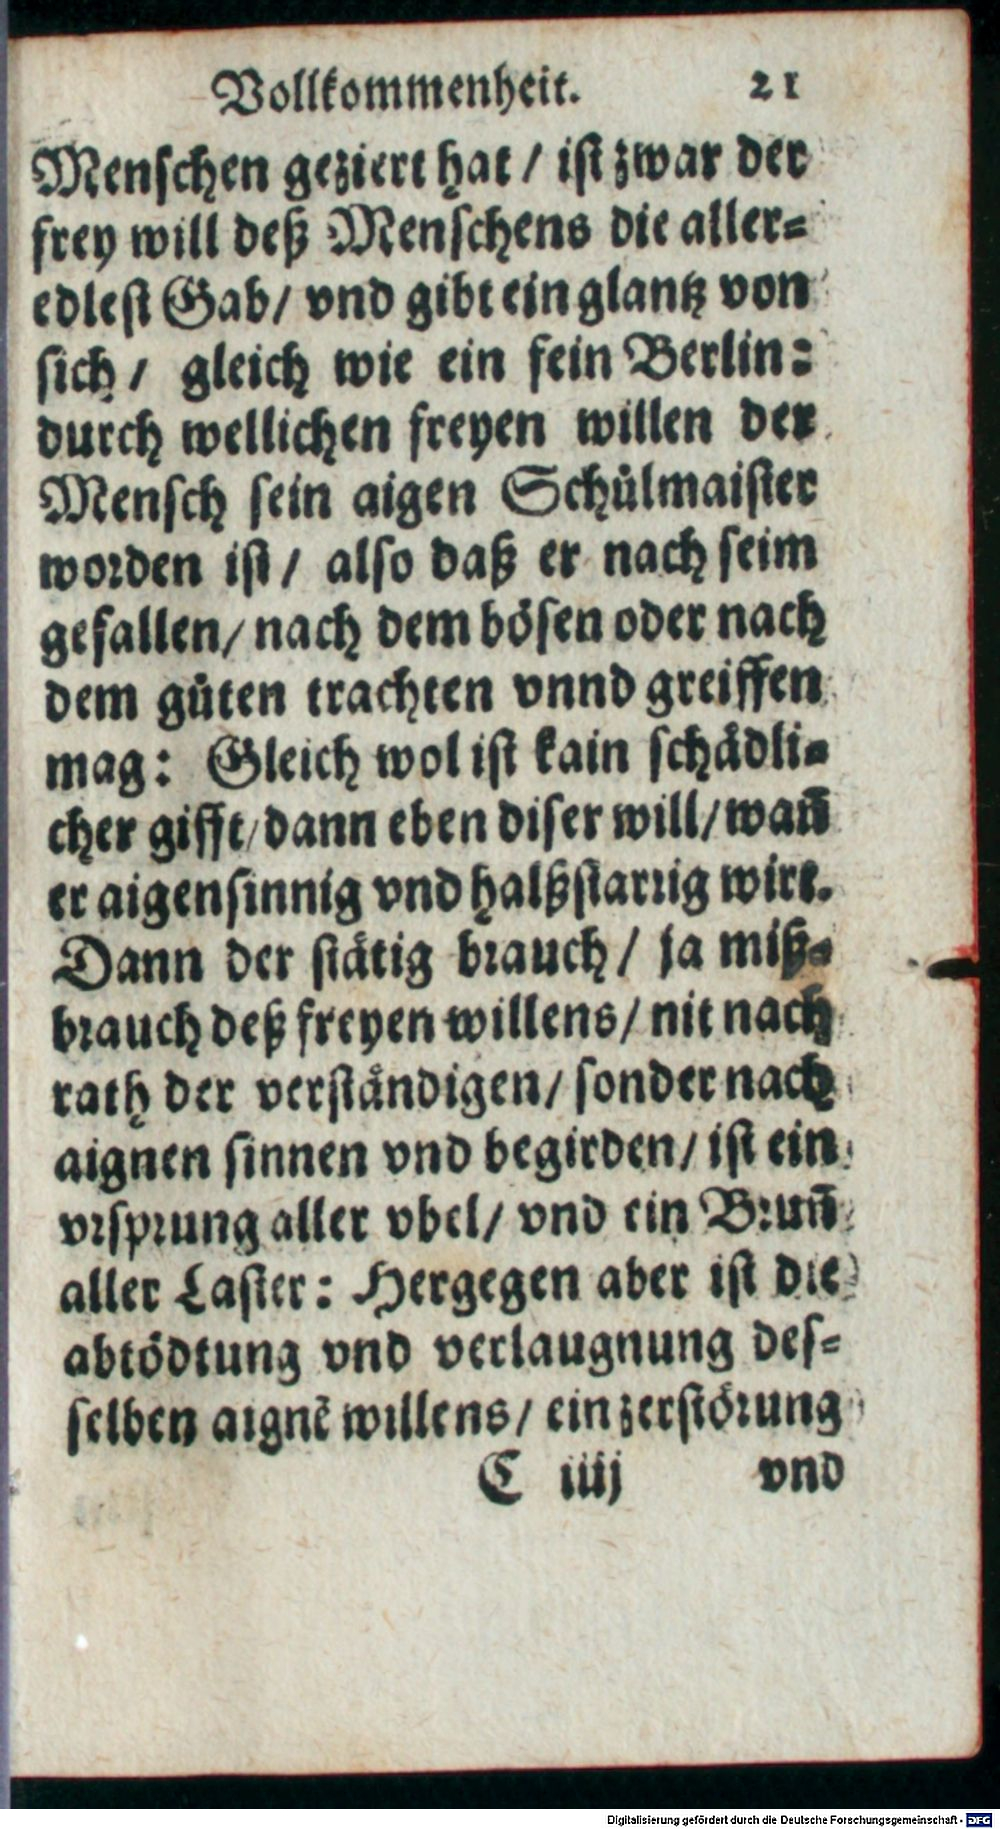 Vollkommenheit. 21
Menschen geziert hat / ist zwar der
frey will deß Menschens die aller-
edlest Gab / vnd gibt ein glantz von
sich / gleich wie ein fein Berlin:
durch wellichen freyen willen der
Mensch sein aigen Schůlmaister
worden ist / also daß er nach seim
gefallen / nach dem bösen oder nach
dem gůten trachten vnnd greiffen
mag: Gleich wol ist kain schådli-
cher gifft / dann eben diser will / wañ
er aigensinnig vnd halßstarrig wirt.
Dann der ståtig brauch / ja miß-
brauch deß freyen willens / nit nach
rath der verståndigen / sonder nach
aignen sinnen vnd begirden / ist ein
vrsprung aller vbel / vnd ein Bruñ
aller Laster: Hergegen aber ist die
abtödtung vnd verlaugnung des-
selben aignē willens / ein zerstörung
C iiij vnd
Digitalisierung gefördert durch die Deutsche Forschungsgemeinschaft - DFG